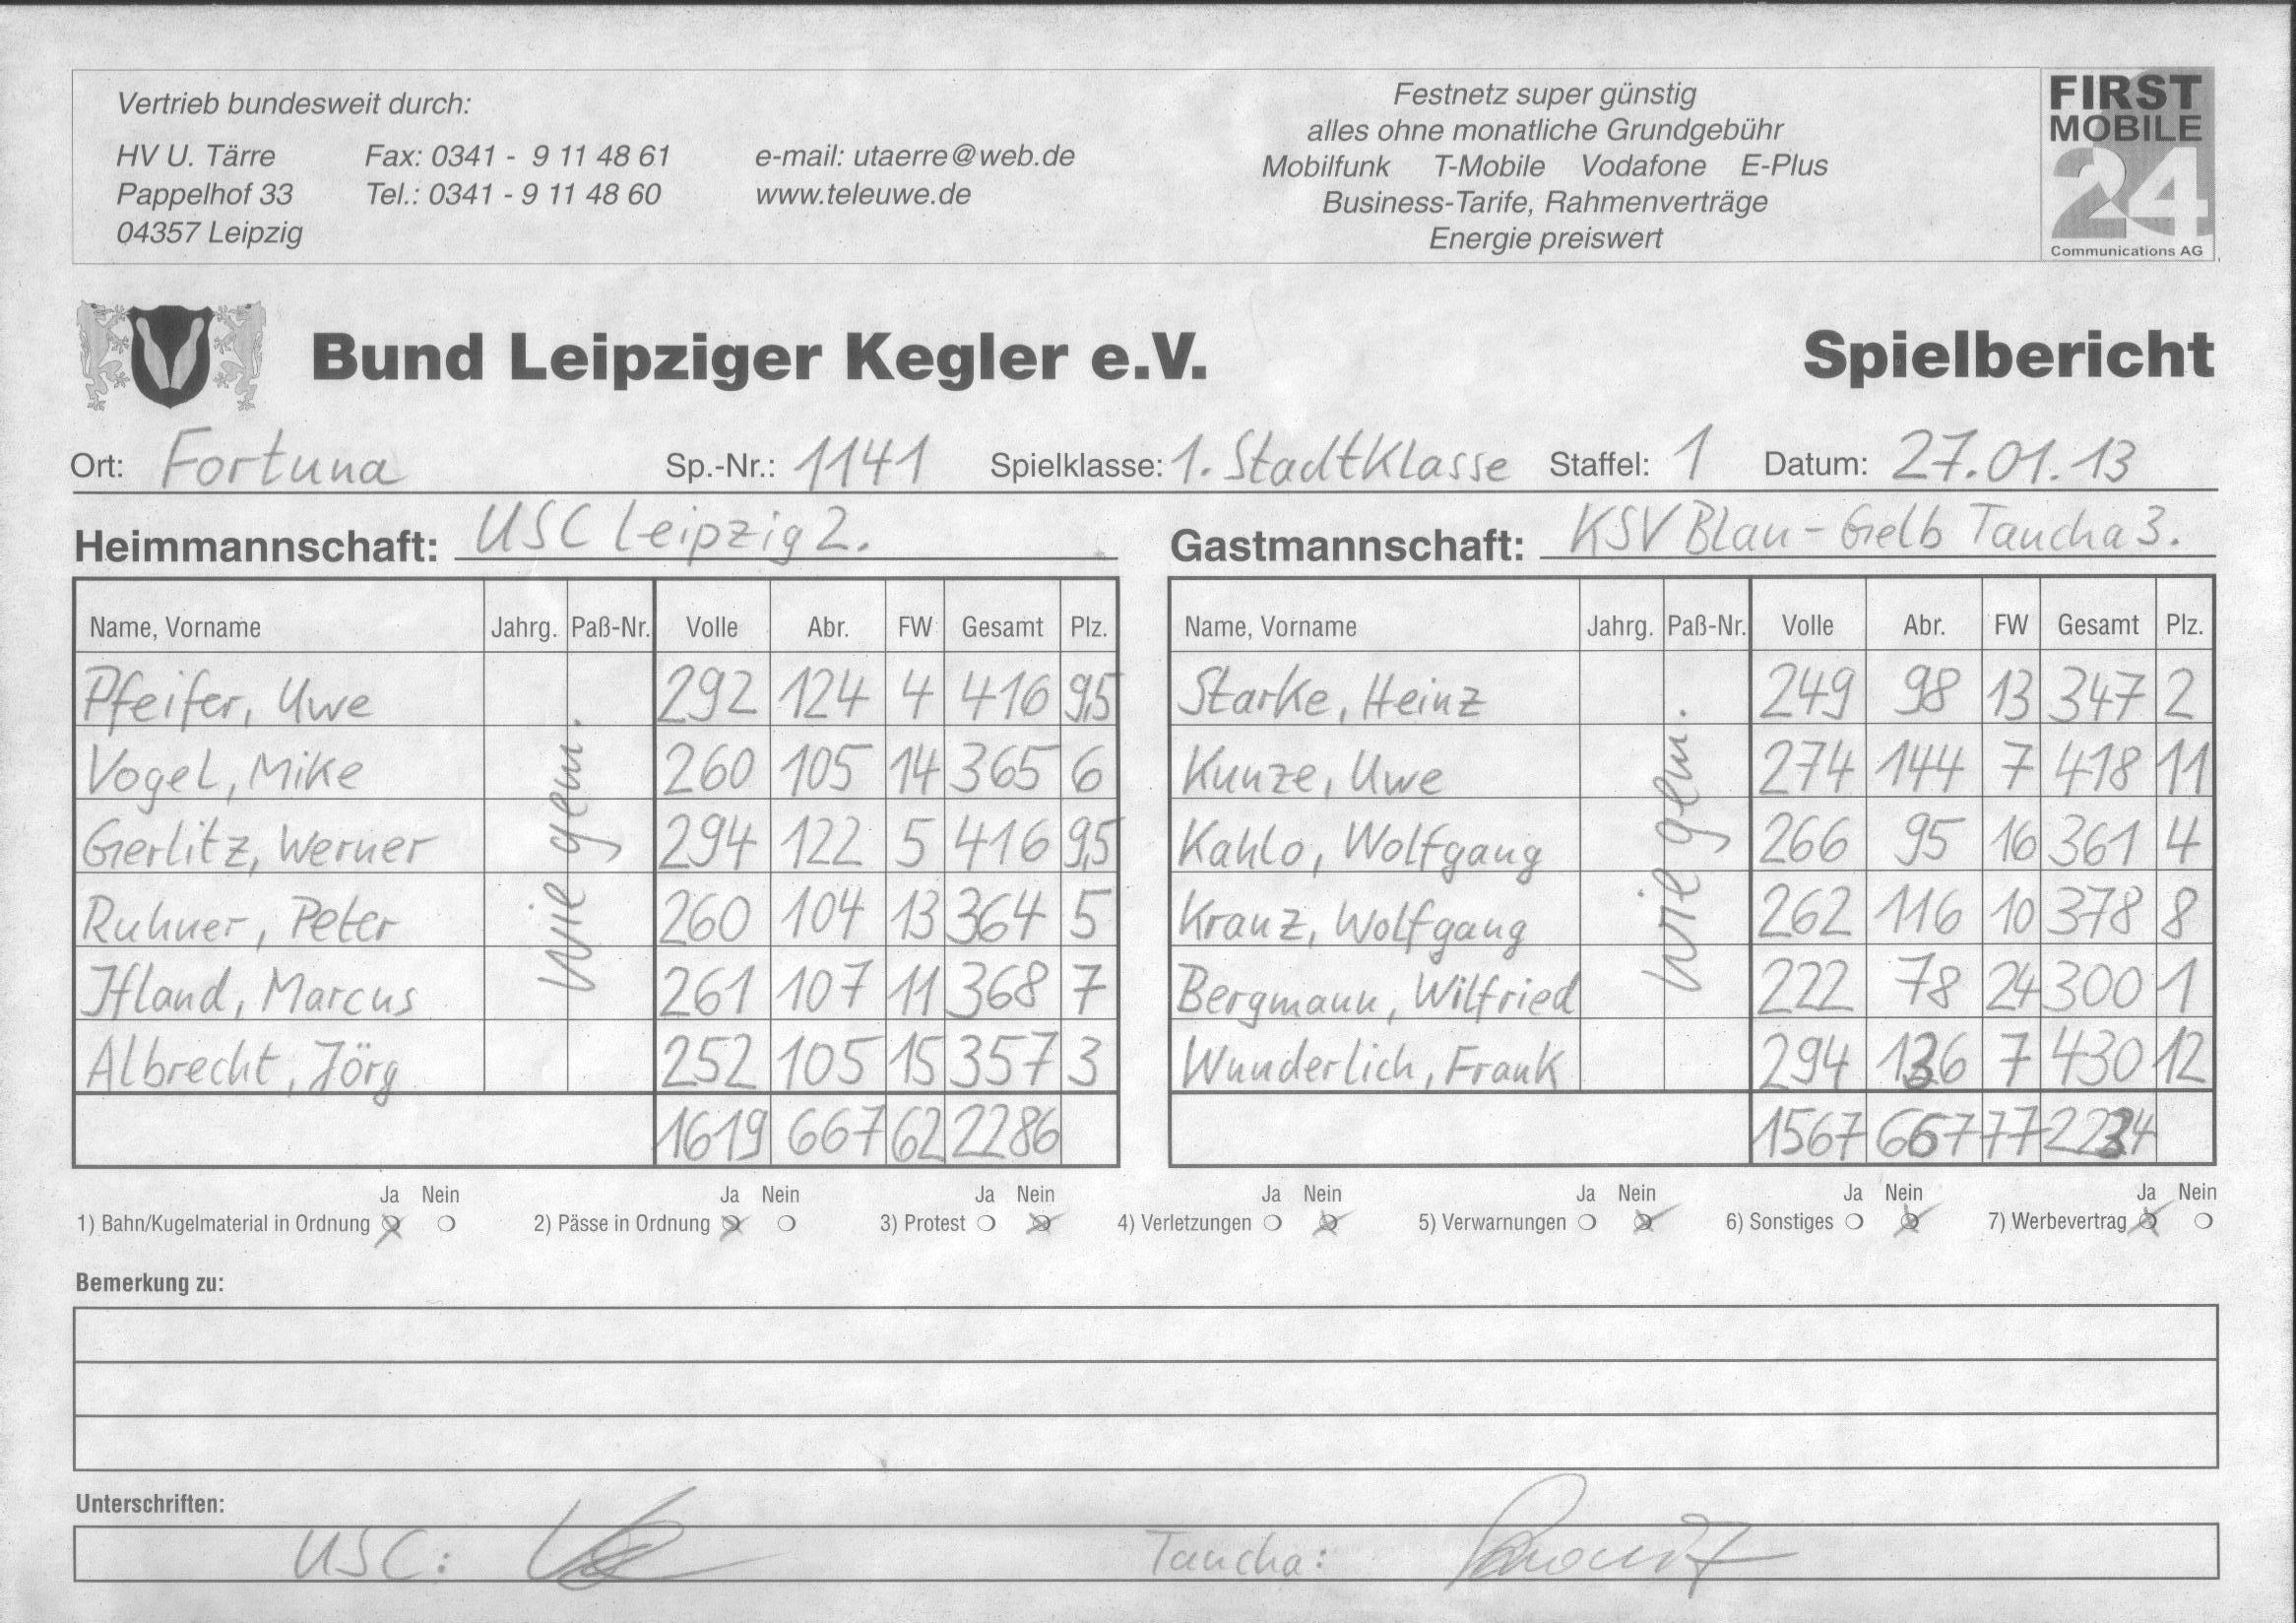 Vertrieb bundesweit durch:
HV U. Tärre Fax: 0341 - 9 11 48 61 e-mail: utaerre@web.de
Pappelhof 33 Tel.: 0341 - 9 11 48 60 www.teleuwe.de
04357 Leipzig
Festnetz super günstig
alles ohne monatliche Grundgebühr
Mobilfunk T-Mobile Vodafone E-Plus
Business-Tarife, Rahmenverträge
Energie preiswert
FIRST
MOBILE
24
Communications AG
Bund Leipziger Kegler e.V. Spielbericht
Ort: Fortuna Sp.-Nr.: 1141 Spielklasse: 1. Stadtklasse Staffel: 1 Datum: 27.01.13
Heimmannschaft: USC Leipzig 2.
Name, Vorname Jahrg. Paß-Nr. Volle Abr. FW Gesamt Plz.
Pfeifer, Uwe 292 124 4 416 9,5
Vogel, Mike 260 105 14 365 6
Gerlitz, Werner 294 122 5 416 9,5
Ruhner, Peter 260 104 13 364 5
Ifland, Marcus 261 107 11 368 7
Albrecht, Jörg 252 105 15 357 3
wie gem.
1619 667 62 2286
Gastmannschaft: KSV Blau-Gelb Taucha 3.
Name, Vorname Jahrg. Paß-Nr. Volle Abr. FW Gesamt Plz.
Starke, Heinz 249 98 13 347 2
Kunze, Uwe 274 144 7 418 11
Kahlo, Wolfgang 266 95 16 361 4
Kranz, Wolfgang 262 116 10 378 8
Bergmann, Wilfried 222 78 24 300 1
Wunderlich, Frank 294 136 7 430 12
wie gem.
1567 667 77 2234
Ja Nein Ja Nein Ja Nein Ja Nein Ja Nein Ja Nein Ja Nein
1) Bahn/Kugelmaterial in Ordnung 2) Pässe in Ordnung 3) Protest 4) Verletzungen 5) Verwarnungen 6) Sonstiges 7) Werbevertrag
Bemerkung zu:
Unterschriften:
USC: Taucha: